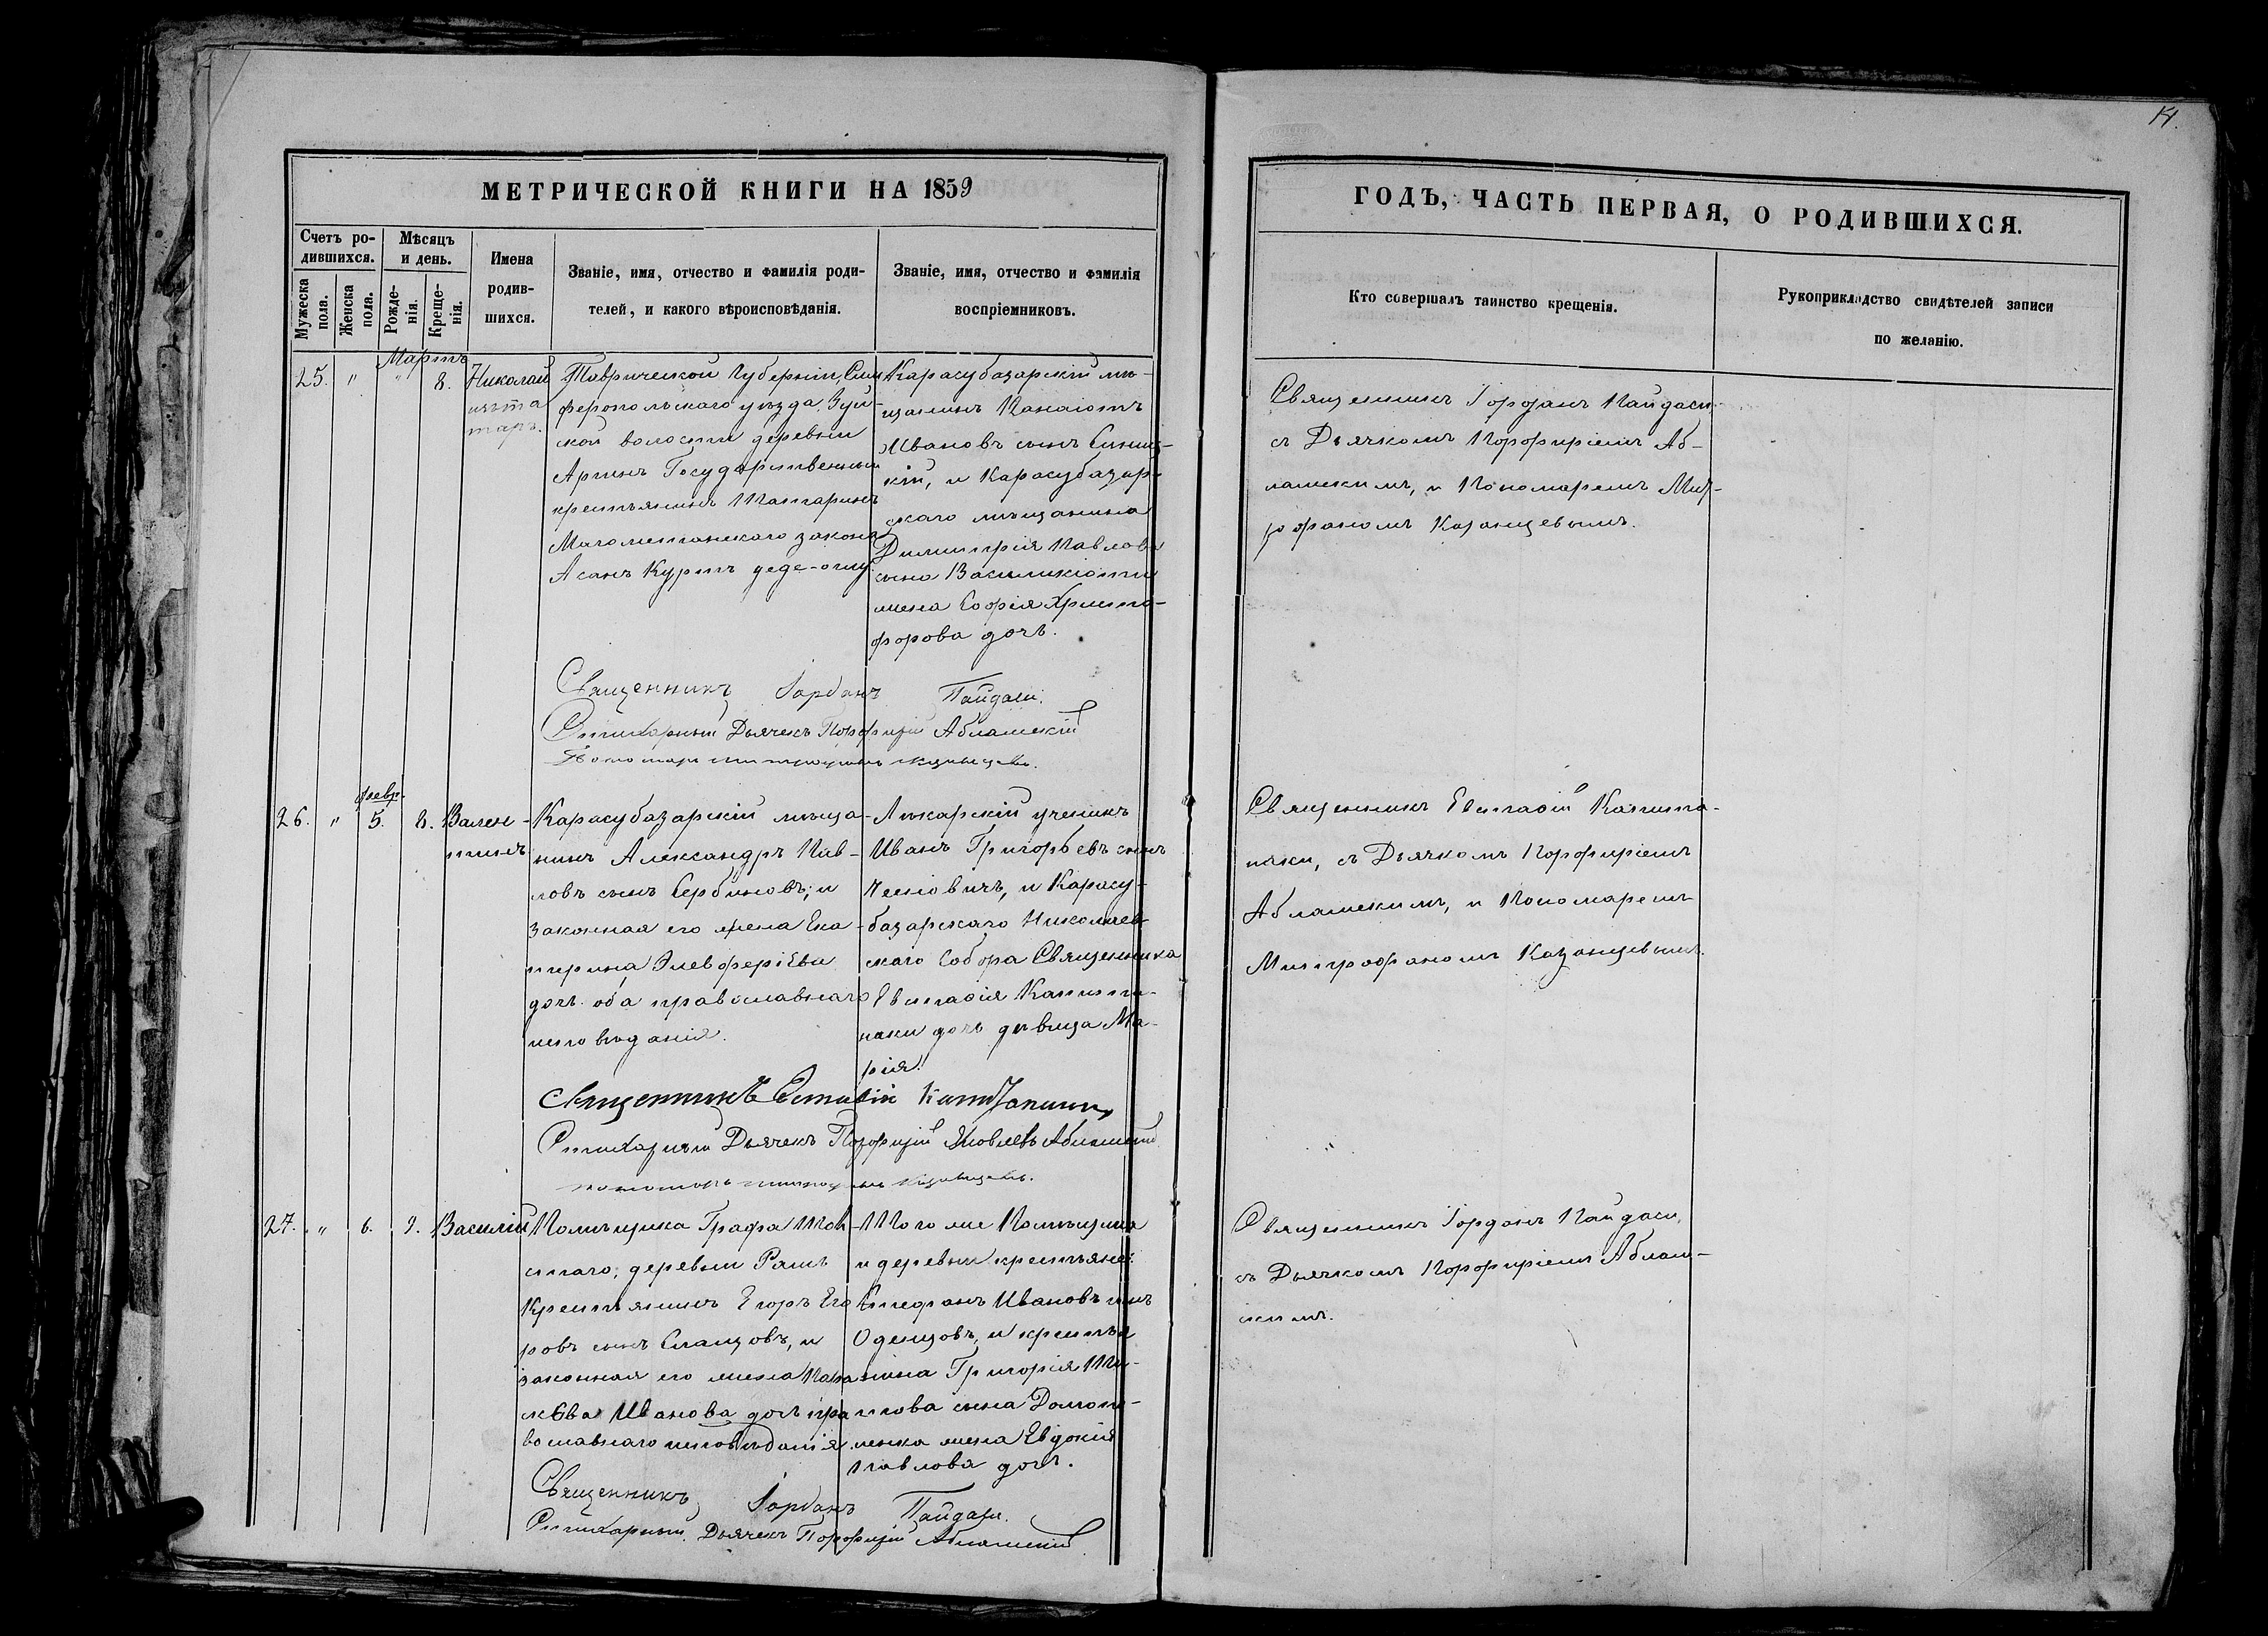 14.
МЕТРИЧЕСКОЙ КНИГИ НА 1859
ГОДЪ, ЧАСТЬ ПЕРВАЯ, О РОДИВШИХСЯ.
Счетъ ро-
дившихся.
Мужеска
пола.
Женска
пола.
Мѣсяцъ
и день.
Рожде-
нія.
Креще-
нія.
Имена
родив-
шихся.
Званіе, имя, отчество и фамилія роди-
телей, и какого вѣроисповѣданія.
Званіе, имя, отчество и фамилія
воспріемниковъ.
Кто совершалъ таинство крещенія.
Рукоприкладство свидѣтелей записи
по желанію.
Мартъ
25. " " 8. Николай
Таврической Губерніи, Сим
феропольскаго уѣзда, Зуй-
ской волости деревни
Аргинъ Государственный
крестьянинъ Татаринъ
Магометанскаго закона
Асанъ Куртъ деде-оглу
Карасубазарскій мѣ-
щанинъ Панаіотъ
Ивановъ сынъ
кій, и Карасубазар-
скаго мѣщанина
Димитрія Павлова
сына Василикіоти
жена Софія Христо-
форова дочь.
Священникъ Іорданъ Пайдаси
съ Дьячкомъ Порфиріемъ Аб-
лажскимъ, и Пономаремъ Мит-
рофаномъ Казанцевымъ.
Священникъ Іорданъ Пайдаси.
Стихарный Дьячекъ Порфирій Аблажскій
Пономарь Митрофанъ Казанцевъ.
Февр.
26. " 5. 8. Вален-
тинъ
Карасубазарскій мѣща-
нинъ Александръ Пав-
ловъ сынъ Сербиновъ; и
законная его жена Ека-
терина Элевферіева
дочь оба православнаго
исповѣданія.
Лѣкарскій ученикъ
Иванъ Григорьевъ сынъ
и Карасу-
базарскаго Николаев-
скаго Собора Священника
Евстафія Капита-
наки дочь дѣвица Ма-
рія.
Священникъ Евстафій Капита-
наки, съ Дьячкомъ Порфиріемъ
Аблажскимъ, и Пономаремъ
Митрофаномъ Казанцевымъ.
Священникъ Евстафій
Стихарный Дьячекъ Порфирій Яковлевъ Аблажскій
Пономарь Митрофанъ Казанцевъ.
27. " 6. 9. Василій
Помѣщика Графа Тол-
стаго, деревни
Крестьянинъ Егоръ Его
ровъ сынъ и
законная его жена Пара
скева Иванова дочь пра
вославнаго исповѣданія.
Того же Помѣщика
и деревни крестьяне:
Стефанъ Ивановъ сынъ
Оденцовъ, и крестья
нина Григорія Ти-
това сына
жена Евдокія
Павлова дочь.
Священникъ Іорданъ Пайдаси,
съ Дьячкомъ Порфиріемъ Аблаж-
скимъ.
Священникъ Іорданъ Пайдаси.
Стихарный Дьячекъ Порфирій Аблажскій